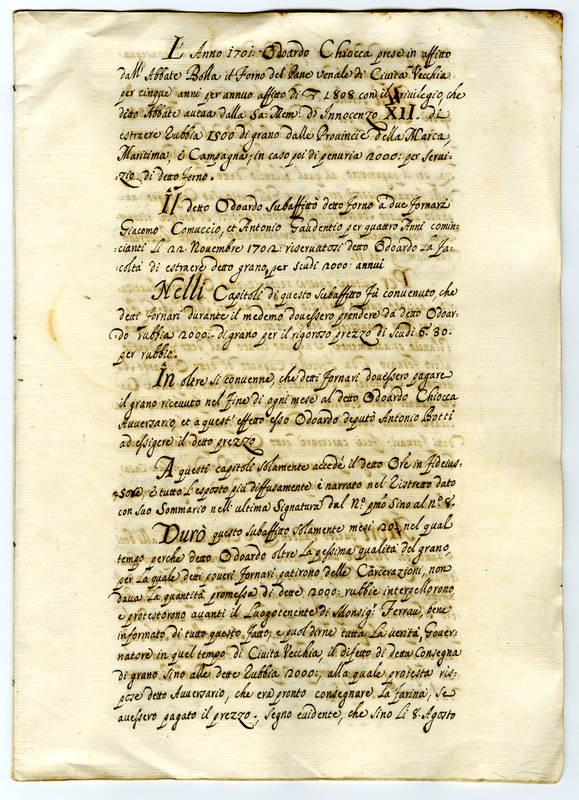 L'Anno 1701: Odoardo Chiocca prese in affitto
dall'Abbate Bolla il forno del Pane Venale di Civita Vecchia
per cinque anni per annuo affitto di 1808 con il Privilegio, che
ditto Abbate aveva dalla Sa: Mem: d'Innocenzo XII. di
estraere Rubbia 1500 di grano dalle Provincie della Marca,
Maritima, è Campagna, in caso poi di penuria 2000: per servi:
zio di detto forno.
Il detto Odoardo subaffittò detto forno a due fornari
Giacomo Comuccio, et Antonio Gaudentio per quattro Anni comin:
cianti li 22 Novembre 1702: riservatosi detto Odoardo la fa:
coltà di estraere detto grano, per scudi 2000 annui
Nelli Capitoli di questo subaffitto fù convenuto, che
detti fornari durante il medemo dovessero prendere da detto Odoar:
do rubbia 2000:- di grano per il rigoroso prezzo di scudi 6: 30-
per rubbio.
In oltre si convenne, che detti fornari dovessero pagare
il grano ricevuto nel fine di ogni mese al detto Odoardo Chiocca
Avversario, et a quest'effetto esso Odoardo deputò Antonio Botti
ad essigere il detto prezzo
A questi capitoli solamente accedé il detto in fideius:
sore, è tutto l'esposto più diffusamente è narrato nel Ristretto dato
con suo Sommario nell'ultima Signatura dal N.º pmo sino al nº 8.
Durò questo subaffitto solamente mesi 20: nel qual
tempo perche detto Odoardo oltre la pessima qualità del grano
per la quale detti poveri fornari patirono delle Carcerazioni, non
dava la quantità promessa di dette 2000: rubbie interpellorono
e protestorono avanti il Luogotenente di Monsig.r Ferrau, bene
informato di tutto questo fatto, e puol dirne tutta la verità Gover:
natore in quel tempo di Civita Vecchia, il difetto di detta Consegna
di grano sino alle dette Rubbia 2000:, alla quale protesta ris:
pose detto Avversario, che era pronto consegnare la farina, se
avessero pagato il prezzo., segno evidente, che sino li 8. Agosto